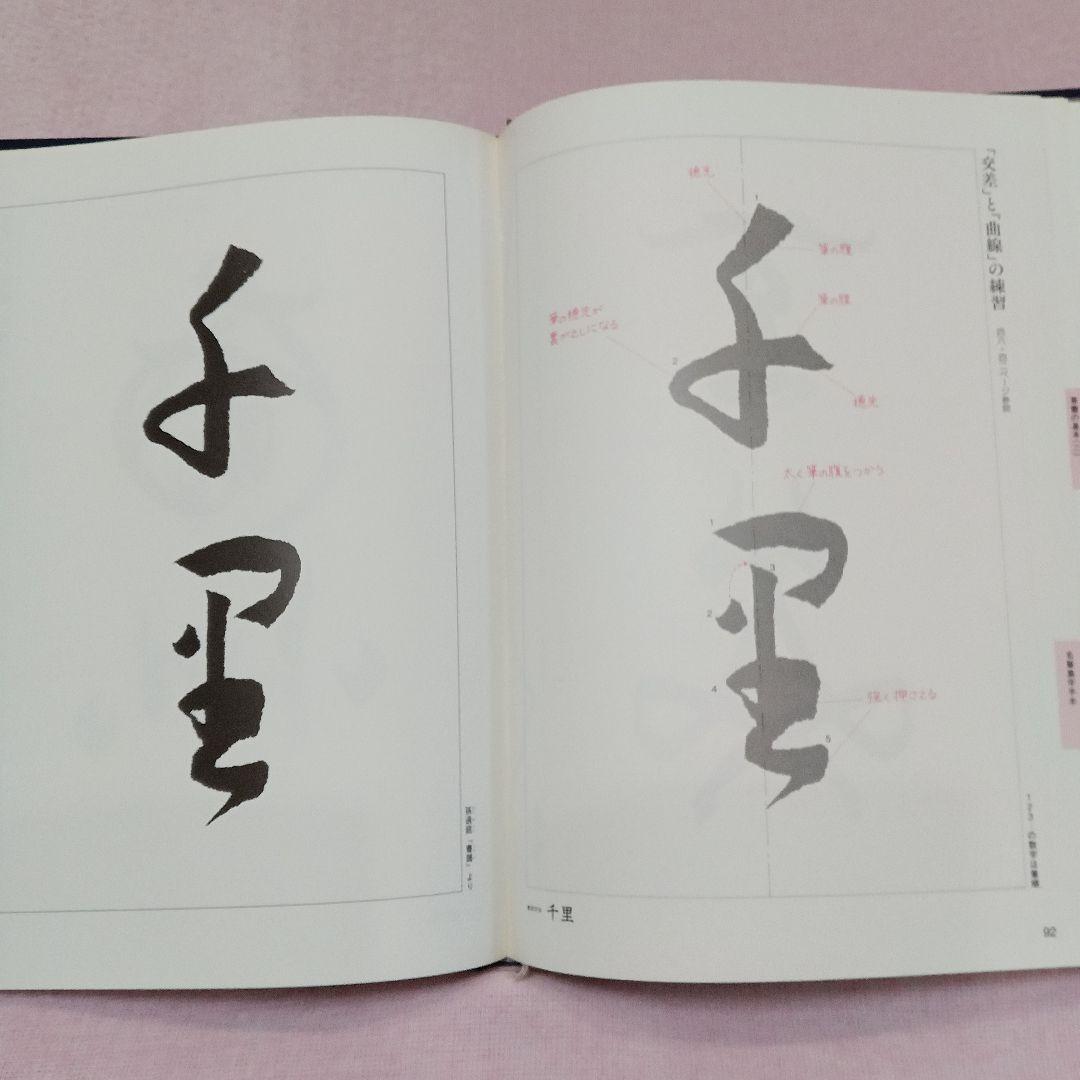 「交差」と「曲線」の練習
穂先
筆の腹
筆の腹
筆の穂先が
裏がえしになる
穂先
太く筆の腹をつかう
強く押さえる
千
里
1
2
1
2
3
4
5
1・2・3…の数字は筆順
千里
92
千
里
孫過庭「書譜」より